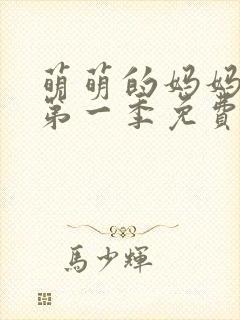 萌萌的妈妈
第一季免費
馬少輝